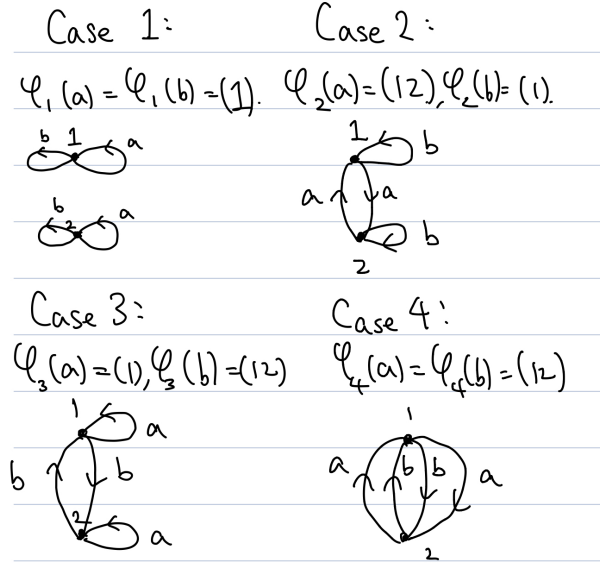 Case 1:
φ₁(a) = φ₁(b) = (1).
b 1 a
b 2 a
Case 2:
φ₂(a)=(12), φ₂(b)= (1).
1 b
a a
b
2
Case 3:
φ₃(a) = (1), φ₃(b) = (12)
1 a
b b
2 a
Case 4:
φ₄(a) = φ₄(b) = (12)
1
a b b a
2